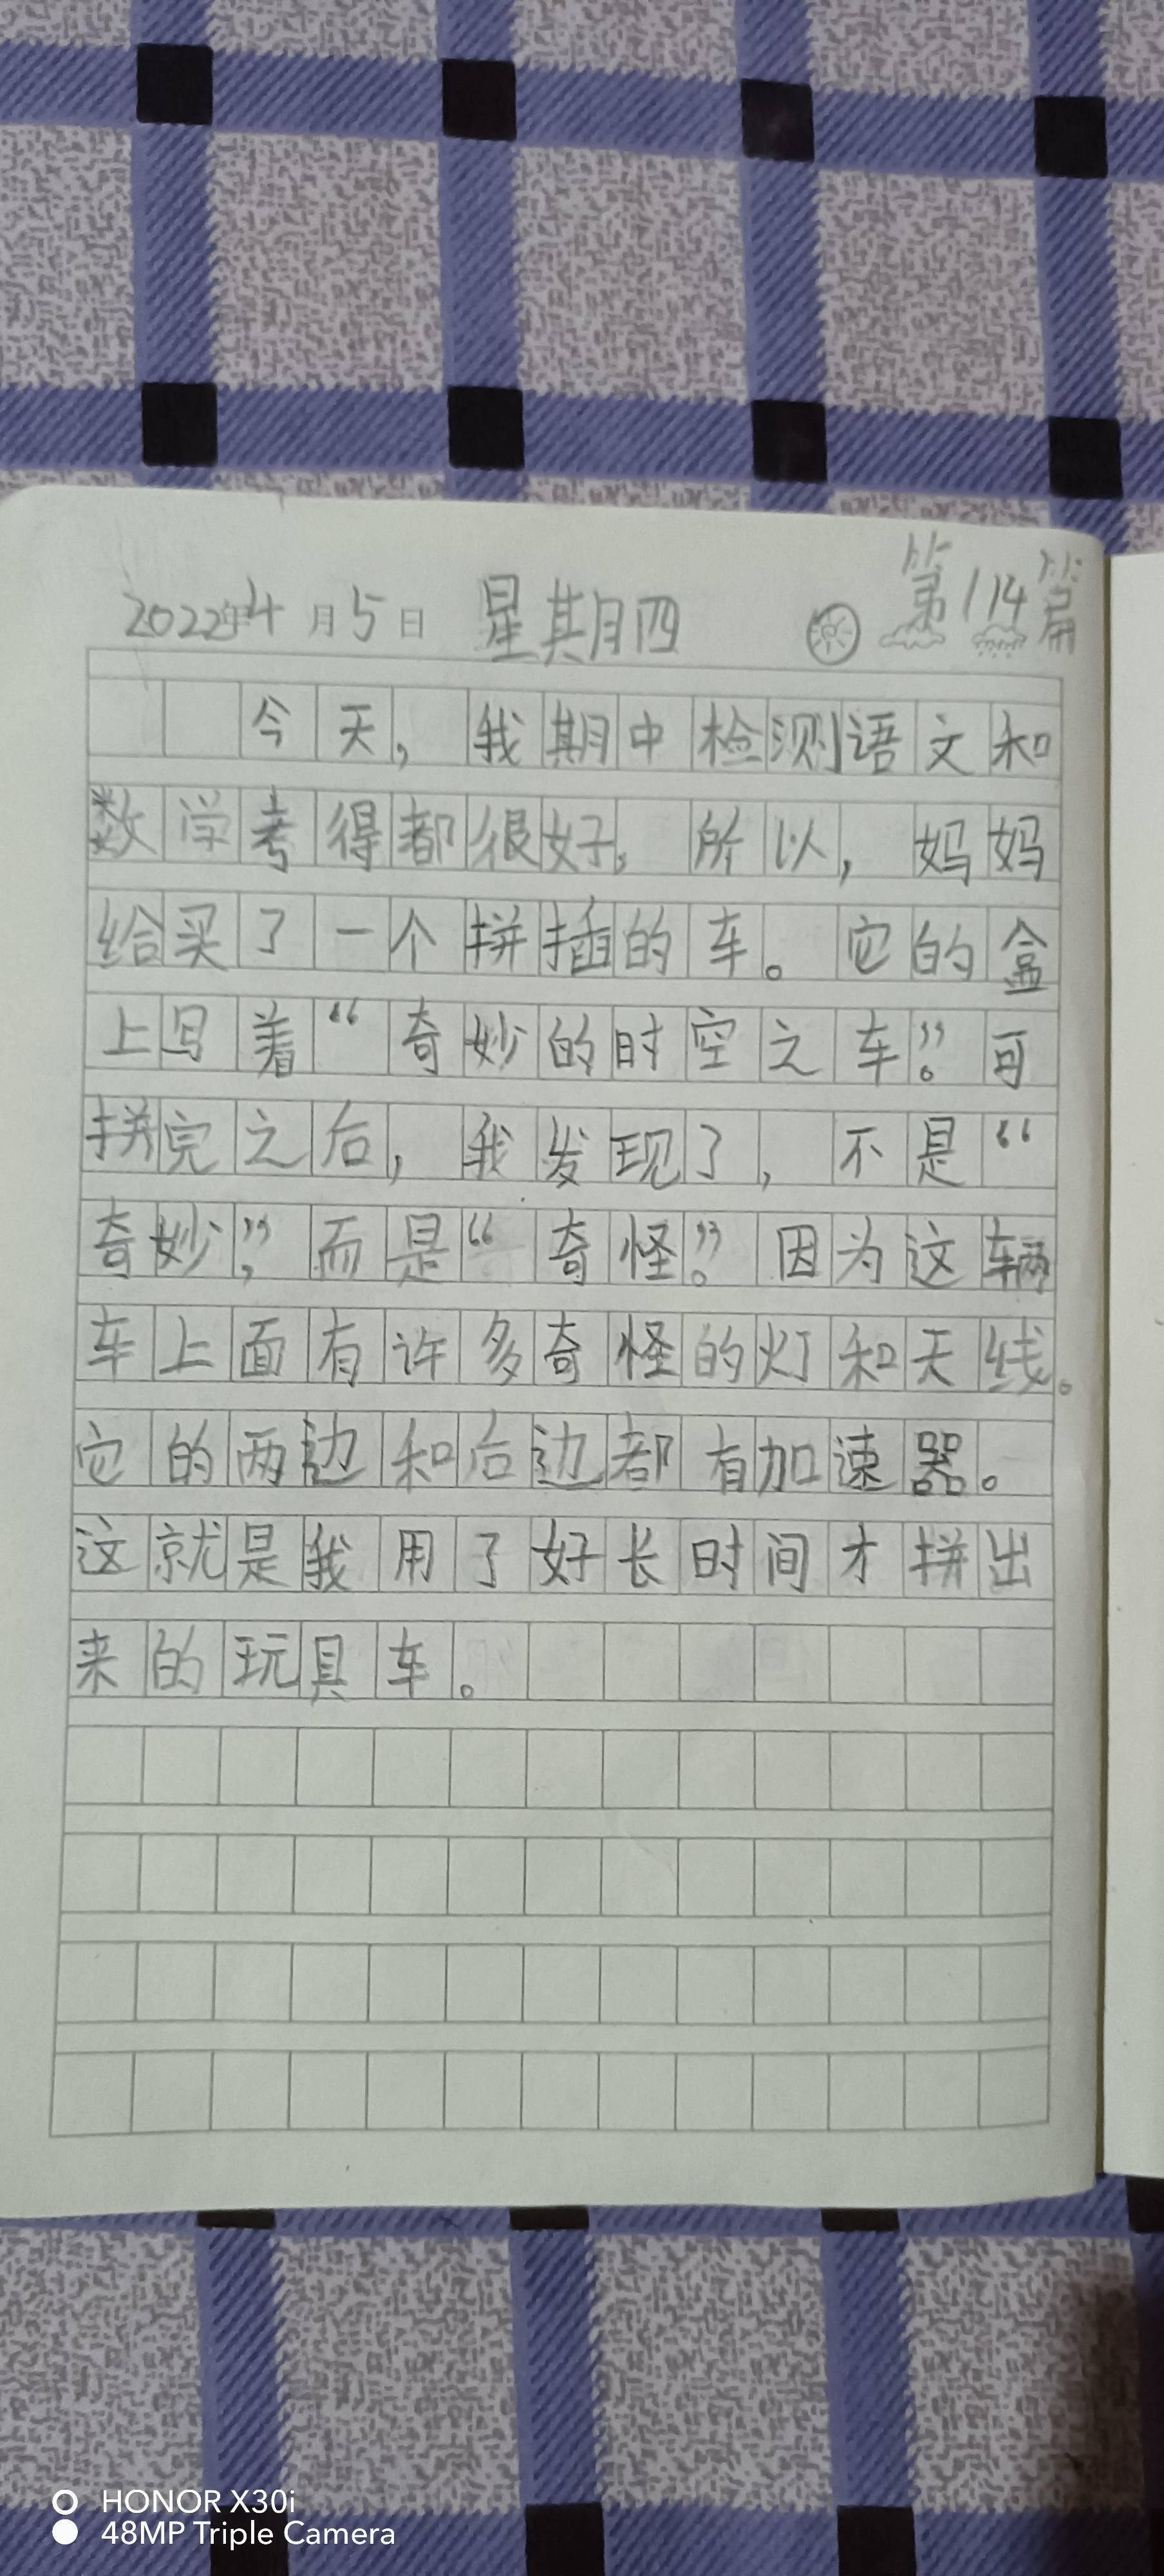 2022年4月5日 星期四 第114篇
今天，我期中检测语文和
数学考得都很好。所以，妈妈
给买了一个拼插的车。它的盒
上写着“奇妙的时空之车”。可
拼完之后，我发现了，不是“
奇妙”，而是“奇怪”。因为这辆
车上面有许多奇怪的灯和天线。
它的两边和后边都有加速器。
这就是我用了好长时间才拼出
来的玩具车。
HONOR X30i
48MP Triple Camera